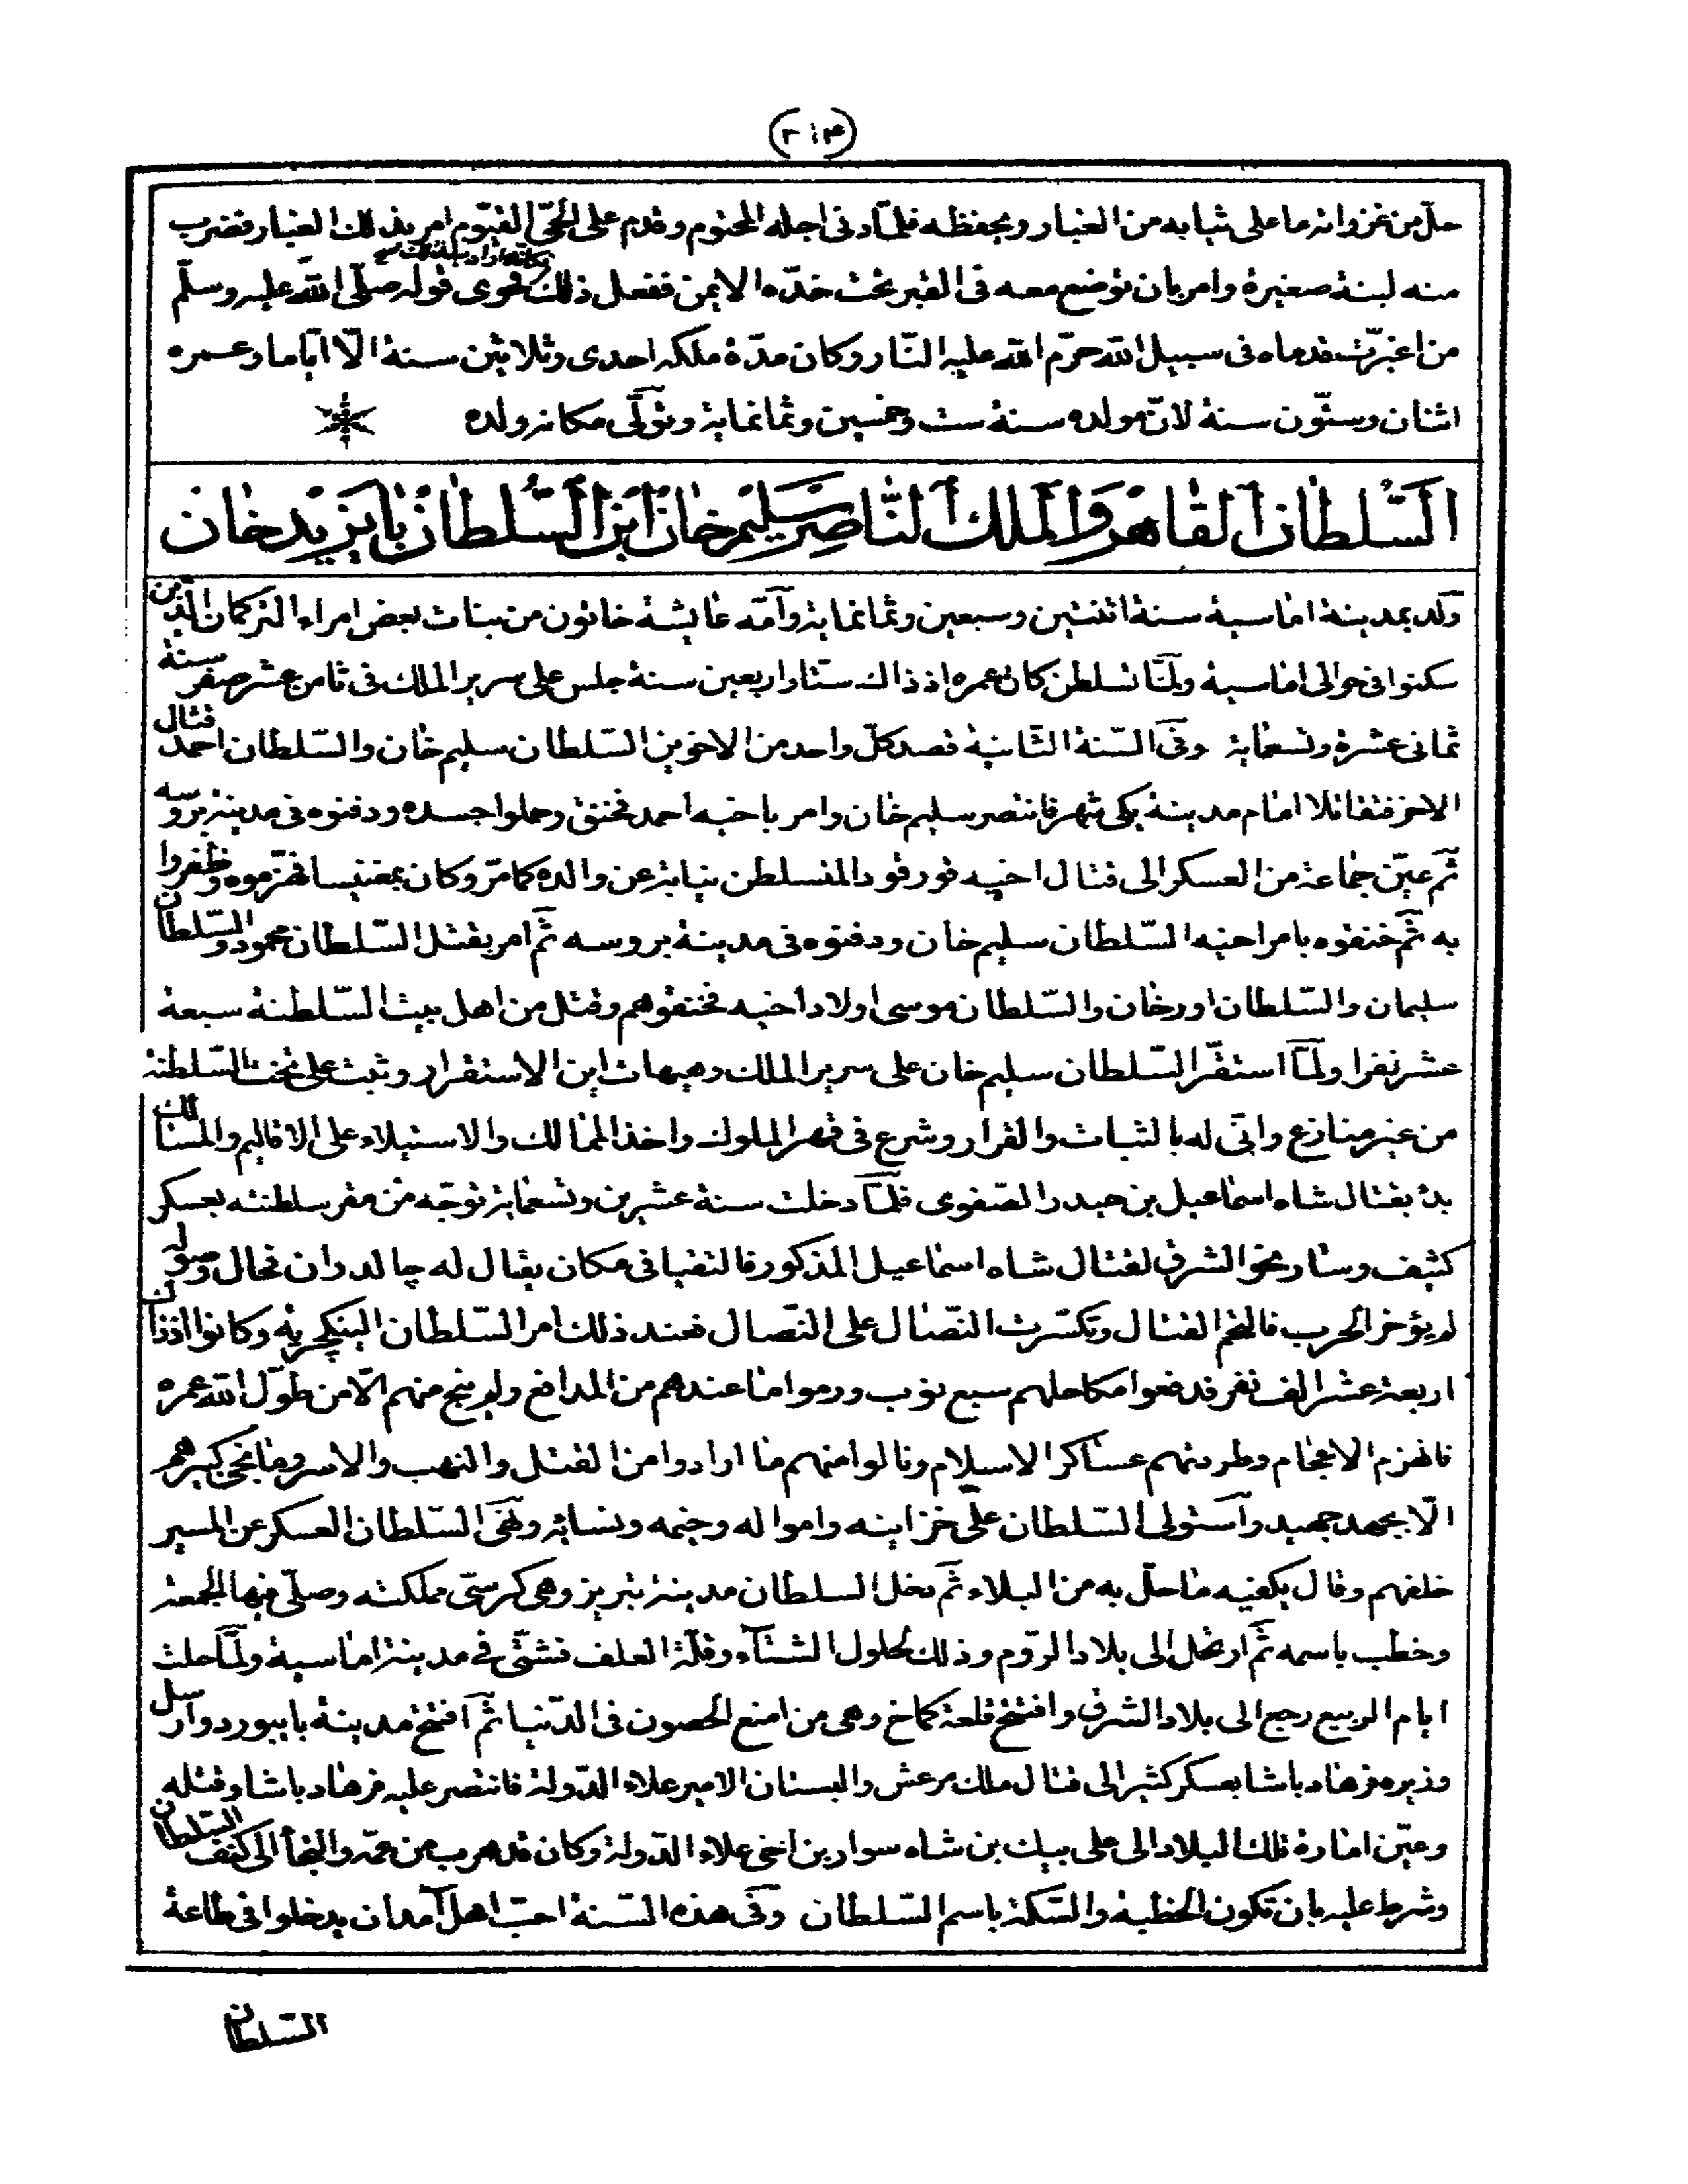 حل من غزواته ما على ثيابه من الغبار ويحفظه فلما دنى اجله المحتوم وقدم على الحي القيوم امر بذلك الغبار فضرب
منه لبنة صغيرة وامر بان توضع معه فى القبر تحت خده الايمن ففعل ذلك فكانه اراد بذلك فحوى قوله صلى الله عليه وسلم
من اغبرت قدماه فى سبيل الله حرم الله عليه النار وكان مدة ملكه احدى وثلاثين سنة الا اياما وعمره
اثنان وستون سنة لان مولده سنة ست وخمسين وثمانماية وتولى مكانه ولده
السلطان القاهر والملك الناصر سليم خان ابن السلطان بايزيد خان
ولد بمدينة اماسية سنة اثنتين وسبعين وثمانماية وامه عايشة خاتون من بنات بعض امراء التركمان الذين
سكنوا فى حوالى اماسية ولما تسلطن كان عمره اذ ذاك ستا واربعين سنة جلس على سرير الملك فى ثامن عشر صفر سنة
ثمانى عشرة وتسعماية وفى السنة الثانية قصد كل واحد من الاخوين السلطان سليم خان والسلطان احمد قتال
الاخر فتقاتلا امام مدينة يكى شهر فانتصر سليم خان وامر باخيه احمد فخنق وحملوا جسده ودفنوه فى مدينة بروسه
ثم عين جماعة من العسكر الى قتال اخيه قورقود المتسلطن نيابة عن والده كما مر وكان بمغنيسا فهزموه وظفروا
به ثم خنقوه بامر اخيه السلطان سليم خان ودفنوه فى مدينة بروسه ثم امر بقتل السلطان محمود والسلطان
سليمان والسلطان اورخان والسلطان موسى اولاد اخيه فخنقوهم وقتل من اهل بيت السلطنة سبعة
عشر نفرا ولما استقر السلطان سليم خان على سرير الملك وهيهات اين الاستقرار وثبت على تخت السلطنة
من غير منازع وانى له بالثبات والقرار وشرع فى قهر الملوك واخذ الممالك والاستيلاء على الاقاليم والمسالك
بدئ بقتال شاه اسماعيل بن حيدر الصفوى فلما دخلت سنة عشرين وتسعماية توجه من مقر سلطنته بعسكر
كثيف وسار نحو الشرق لقتال شاه اسماعيل المذكور فالتقيا فى مكان يقال له چالدران فحال وصوله
لم يؤخر الحرب فالتحم القتال وتكسرت النصال على النصال فعند ذلك امر السلطان الينكچرية وكانوا اذ ذاك
اربعة عشر الف نفر فدفعوا مكاحلهم سبع نوب ورموا ما عندهم من المدافع ولم ينج منهم الا من طول الله عمره
فانهزم الاعجام وطردتهم عساكر الاسلام ونالوا منهم ما ارادوا من القتل والنهب والاسر وما نجى كبيرهم
الا بجهد جهيد واستولى السلطان على خزاينه وامواله وخيمه ونسائه ونهى السلطان العسكر عن المسير
خلفهم وقال يكفيه ما حل به من البلاء ثم دخل السلطان مدينة تبريز وهى كرسى مملكته وصلى فيها الجمعة
وخطب باسمه ثم ارتحل الى بلاد الروم وذلك لحلول الشتاء وقلة العلف فشتى فى مدينة اماسية ولما حلت
ايام الربيع رجع الى بلاد الشرق وافتتح قلعة كماخ وهى من امنع الحصون فى الدنيا ثم افتتح مدينة بايبورد وارسل
وزيره فرهاد باشا بعسكر كثير الى قتال ملك مرعش والبستان الامير علاء الدولة فانتصر عليه فرهاد باشا وقتله
وعين امارة تلك البلاد الى على بيك بن شاه سوار بن اخى علاء الدولة وكان قد هرب من عمه والتجأ الى كنف السلطان
وشرط عليه بان تكون الخطبة والسكة باسم السلطان وفى هذه السنة احب اهل آمد ان يدخلوا فى طاعة
السلطان